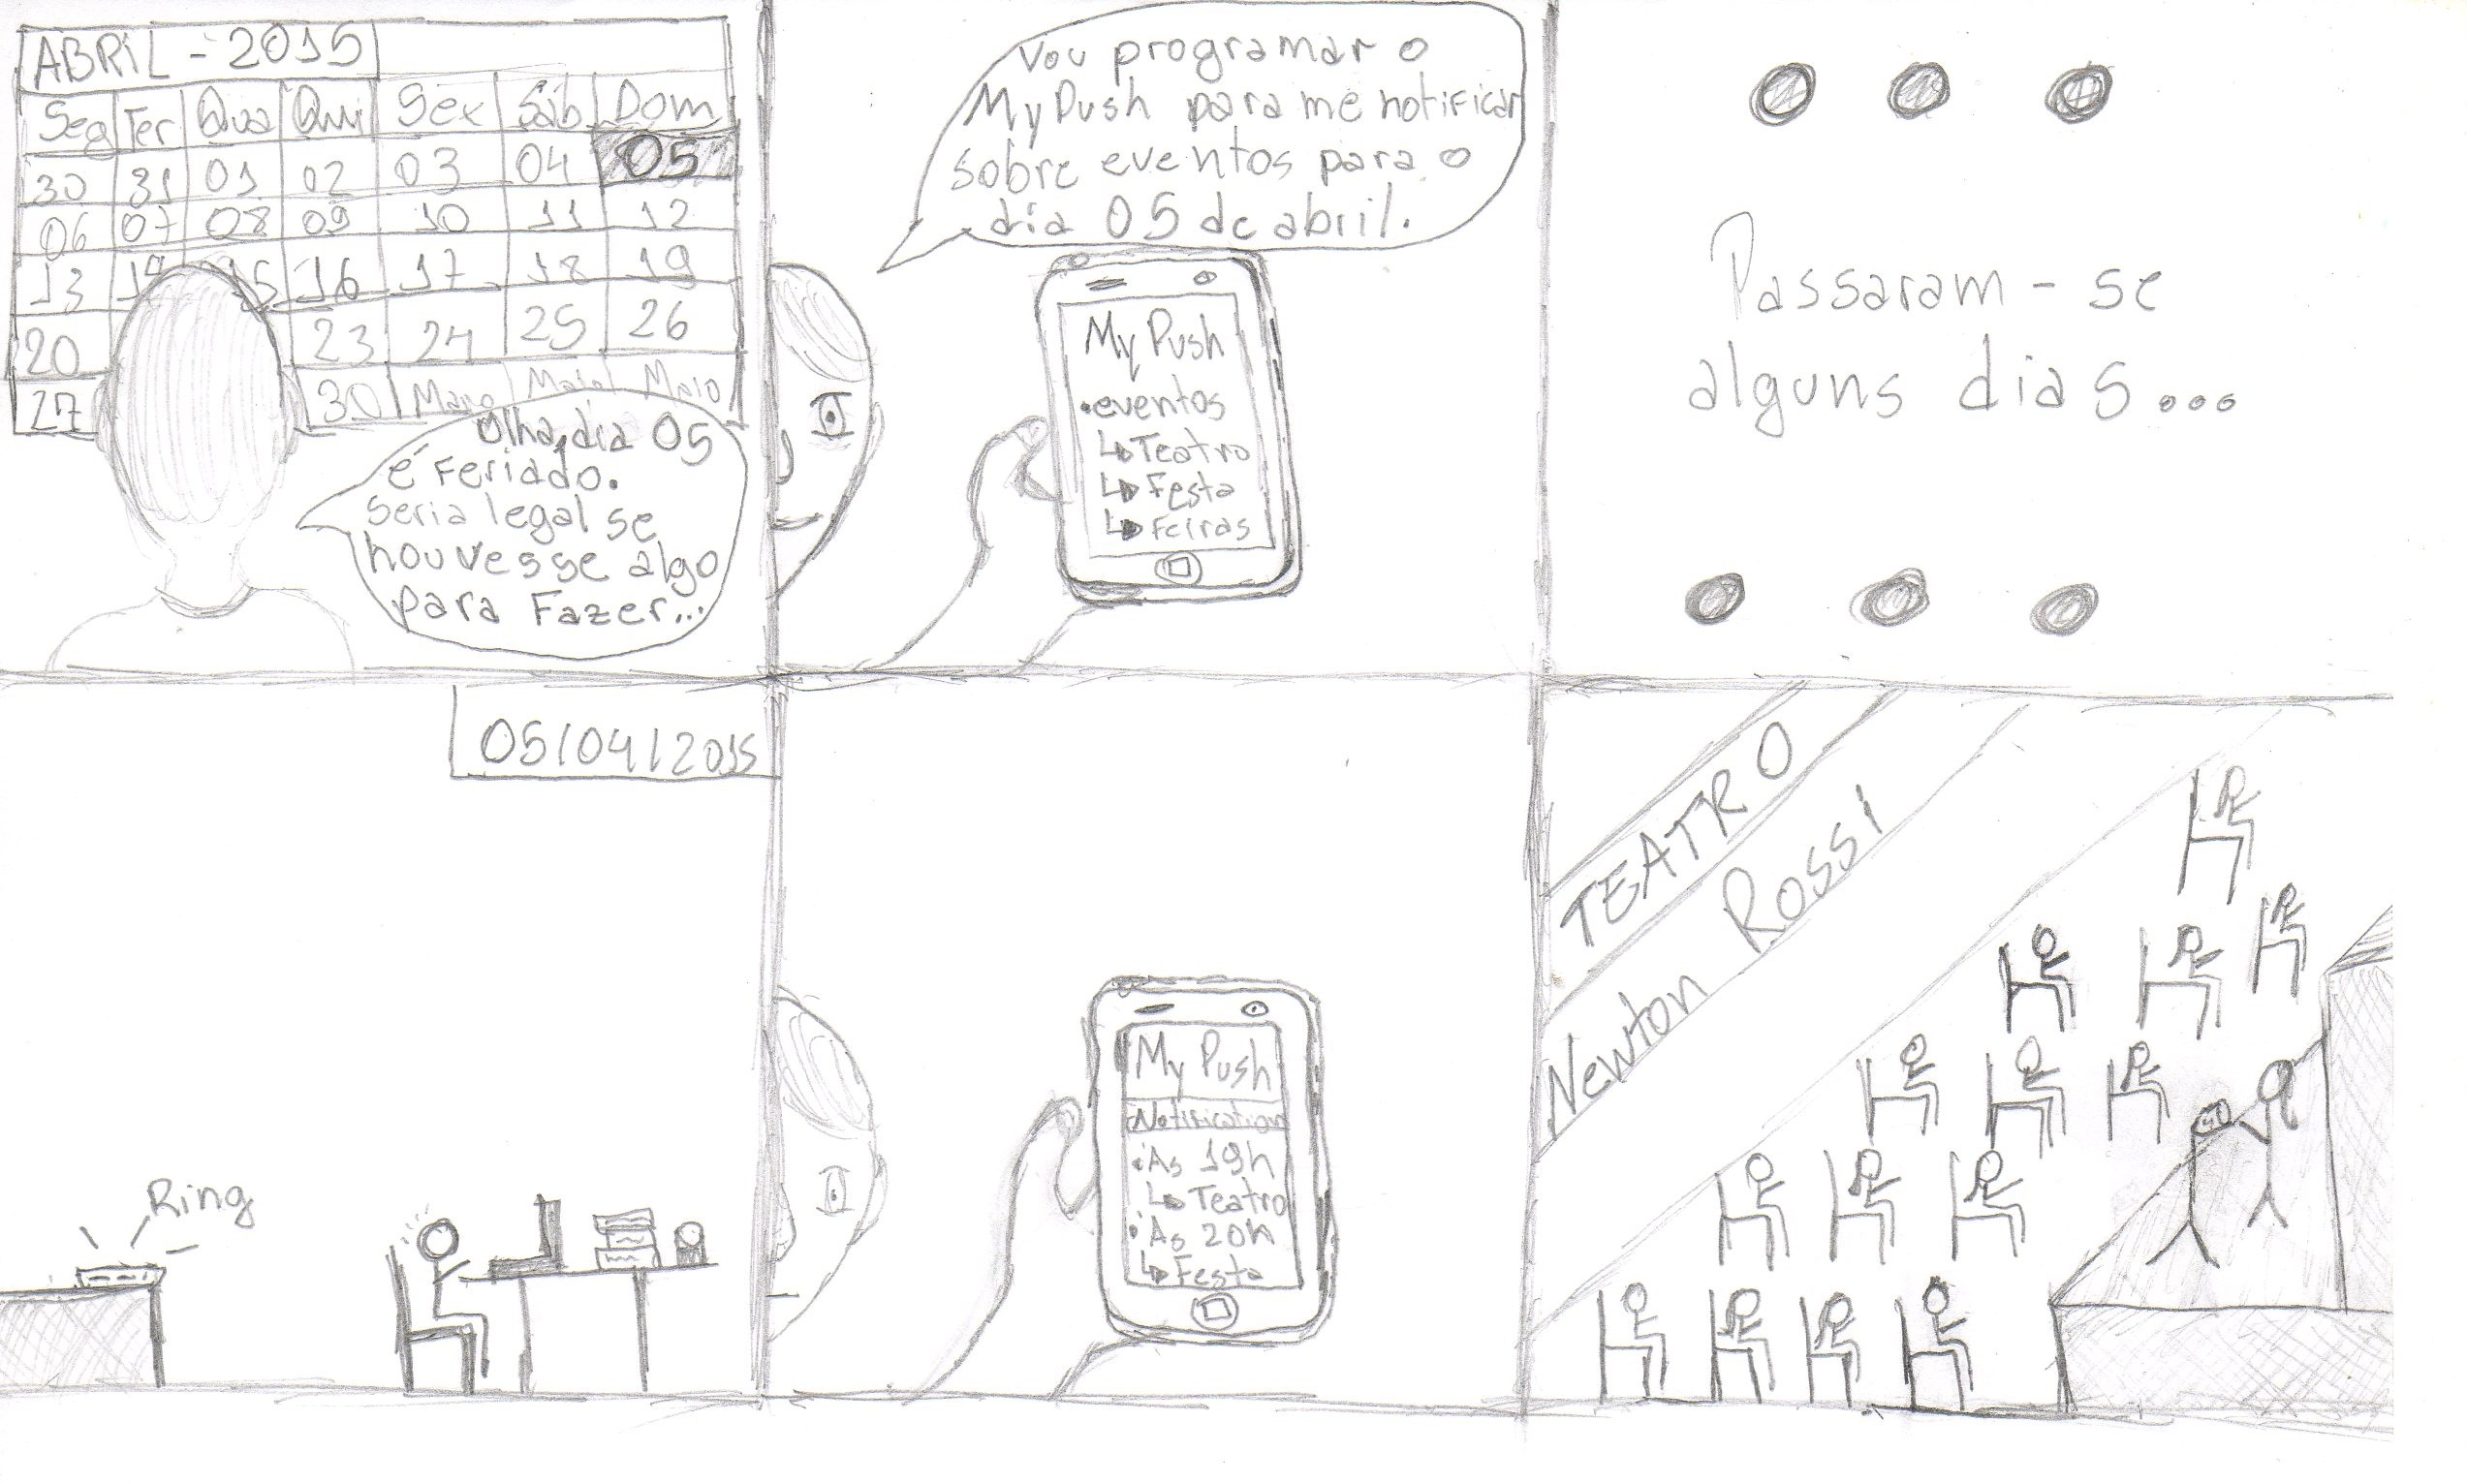 ABRIL - 2015
Seg Ter Qua Qui Sex Sáb Dom
30 31 01 02 03 04 05
06 07 08 09 10 11 12
13 14 15 16 17 18 19
20 23 24 25 26
27 30 Maio Maio Maio
Olha, dia 05
é feriado.
seria legal se
houvesse algo
para Fazer...
Vou programar o
MyPush para me notificar
sobre eventos para o
dia 05 de abril.
My Push
•eventos
↳Teatro
↳Festa
↳Feiras
Passaram-se
alguns dias...
05/04/2015
Ring
My Push
Notification
•As 19h
↳Teatro
•As 20h
↳Festa
TEATRO
Newton Rossi